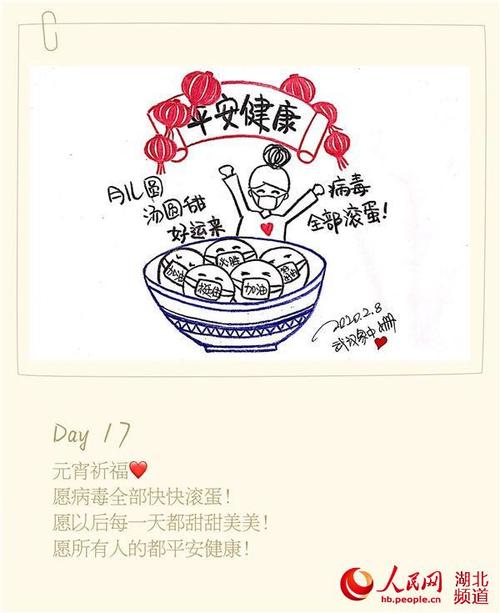 平安健康
月儿圆
汤圆甜
好运来
病毒
全部滚蛋!
加油
必胜
加油
2020.2.8
Day 17
元宵祈福❤
愿病毒全部快快滚蛋!
愿以后每一天都甜甜美美!
愿所有人的都平安健康!
人民网
hb.people.cn
湖北
频道